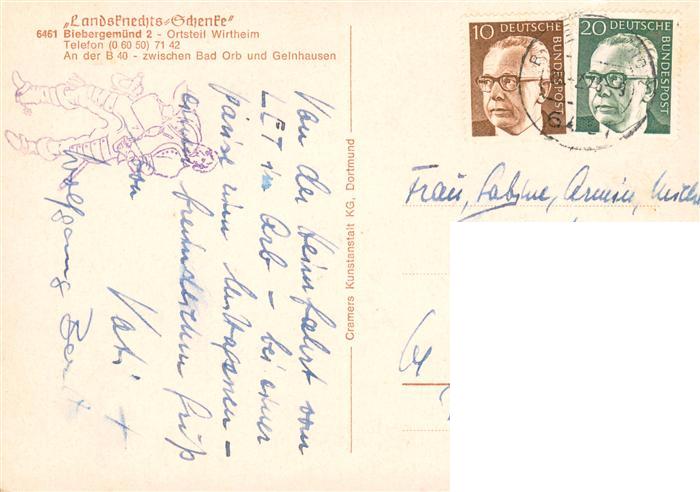 „Landsknechts-Schenke"
6461 Biebergemünd 2 - Ortsteil Wirtheim
Telefon (0 60 50) 71 42
An der B 40 - zwischen Bad Orb und Gelnhausen
Von der Heimfahrt vom
LET in Orb - bei einer
Pause zum Mittagessen -
einen freundlichen Gruß
von Vati +
Wolfgang
Cramers Kunstanstalt KG, Dortmund
10 DEUTSCHE BUNDESPOST
20 DEUTSCHE BUNDESPOST
Frau, Sabine, Armin,